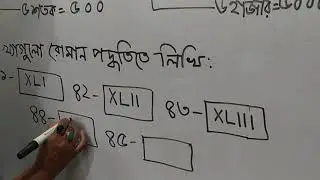 ৫ শতক = ৫০০
৫ হাজার = ৫০০
খ্যাগুলো রোমান পদ্ধতিতে লিখি:
১- XLI ৪২- XLII ৪৩- XLIII
৪৪- ৪৫-